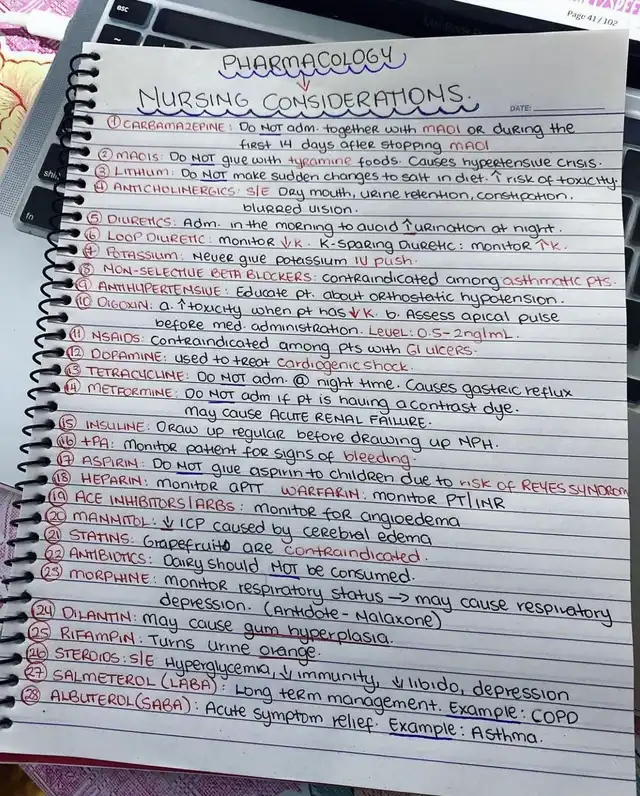 esc
Page 41/102
PHARMACOLOGY
↓
NURSING CONSIDERATIONS.
DATE:
① CARBAMAZEPINE: Do NOT adm. together with MAOI OR during the
first 14 days after stopping MAOI
② MAOIS: Do NOT give with tyramine foods. Causes hypertensive crisis.
③ LITHIUM: Do NOT make sudden changes to salt in diet. ↑ risk of toxicity.
④ ANTICHOLINERGICS: S/E Dry mouth, urine retention, constipation.
blurred vision.
⑤ DIURETICS: Adm. in the morning to avoid ↑urination at night.
⑥ LOOP DIURETIC: monitor ↓K. K-sparing Diuretic: monitor ↑K.
⑦ POTASSIUM: Never give potassium IV push.
⑧ NON-SELECTIVE BETA BLOCKERS: contraindicated among asthmatic pts.
⑨ ANTIHYPERTENSIVE: Educate pt. about orthostatic hypotension.
⑩ DIGOXIN: a. ↑toxicity when pt has ↓K. b. Assess apical pulse
before med. administration. Level: 0.5-2ng/mL.
⑪ NSAIDS: contraindicated among pts with GI ulcers.
⑫ DOPAMINE: used to treat cardiogenic shock.
⑬ TETRACYCLINE: Do NOT adm. @ night time. Causes gastric reflux
⑭ METFORMINE: Do NOT adm if pt is having a contrast dye.
may cause ACUTE RENAL FAILURE.
⑮ INSULINE: Draw up regular before drawing up NPH.
⑯ tPA: monitor patient for signs of bleeding.
⑰ ASPIRIN: Do NOT give aspirin to children due to risk of REYES SYNDROM
⑱ HEPARIN: monitor aPTT WARFARIN: monitor PT/INR
⑲ ACE INHIBITORS/ARBS: monitor for angioedema
⑳ MANNITOL: ↓ ICP caused by cerebral edema
㉑ STATINS: Grapefruit are contraindicated.
㉒ ANTIBIOTICS: Dairy should NOT be consumed.
㉓ MORPHINE: monitor respiratory status → may cause respiratory
depression. (Antidote - Nalaxone)
㉔ DILANTIN: may cause gum hyperplasia.
㉕ RIFAMPIN: Turns urine orange.
㉖ STEROIDS: S/E Hyperglycemia, ↓ immunity, ↓ libido, depression
㉗ SALMETEROL (LABA): Long term management. Example: COPD
㉘ ALBUTEROL (SABA): Acute symptom relief. Example: Asthma.
fn